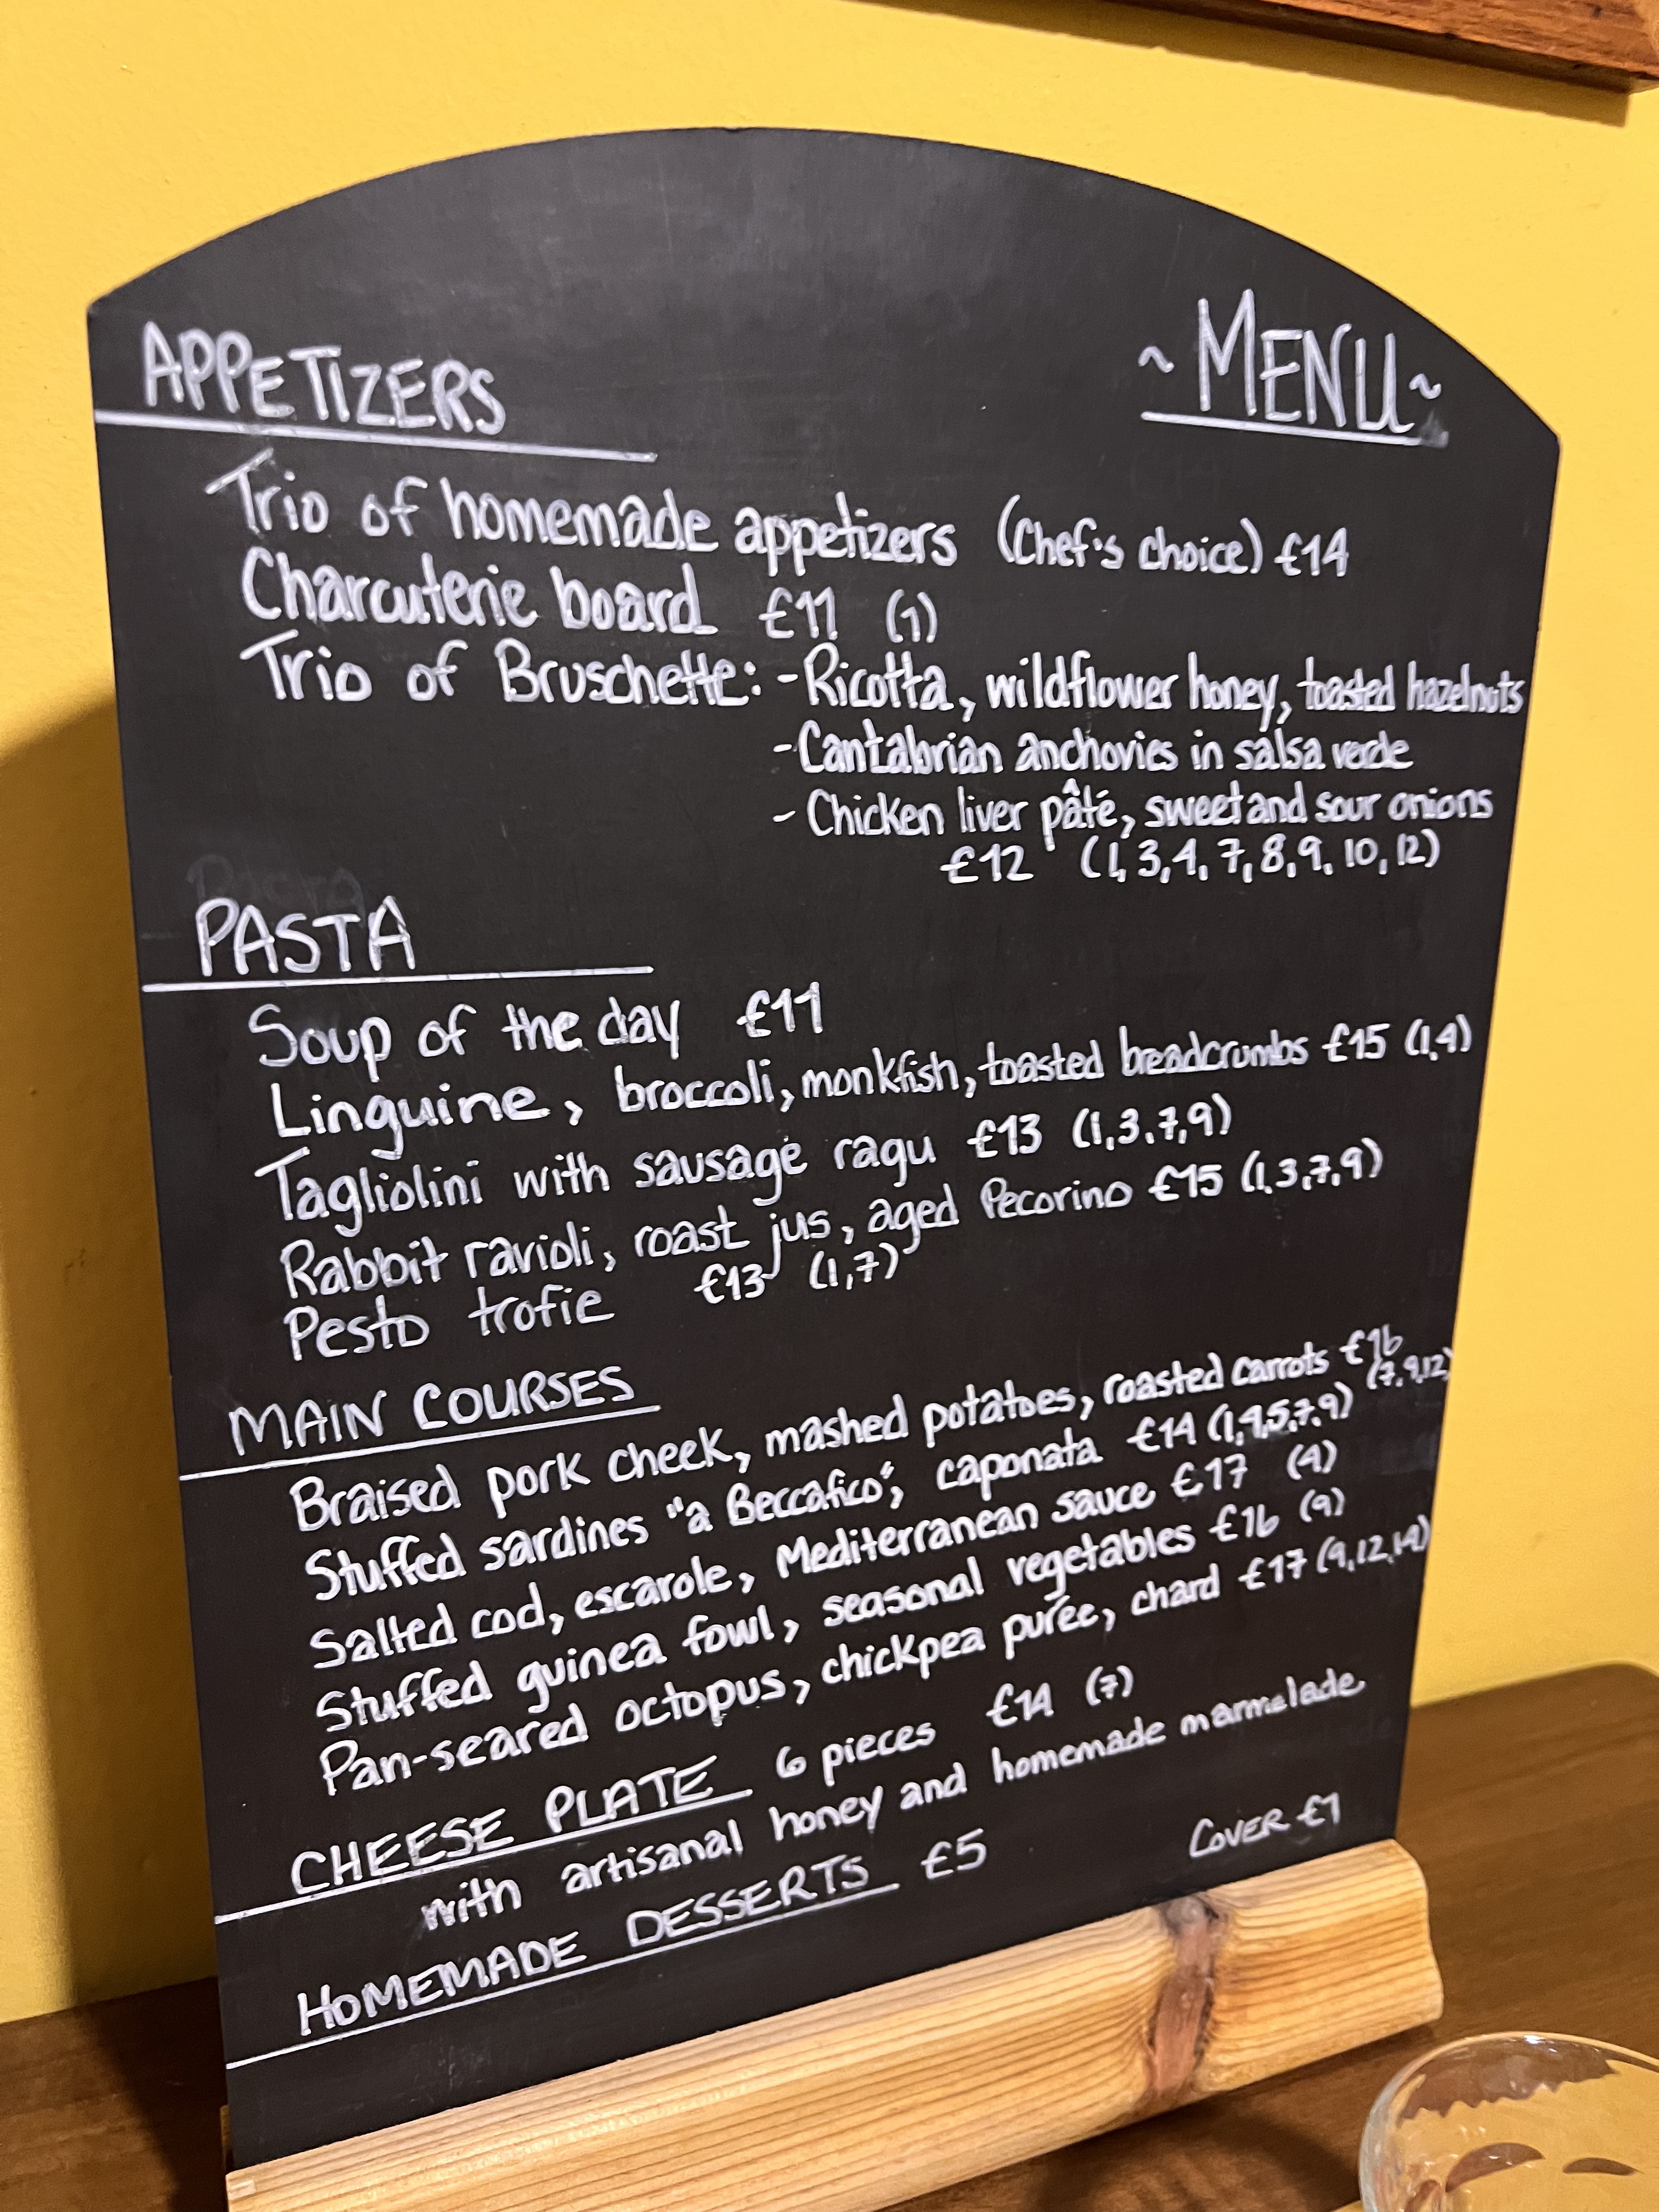 ~ MENU ~
APPETIZERS
Trio of homemade appetizers (Chef's choice) €14
Charcuterie board €11 (1)
Trio of Bruschette: - Ricotta, wildflower honey, toasted hazelnuts
- Cantabrian anchovies in salsa verde
- Chicken liver pâté, sweet and sour onions
€12 (1, 3, 4, 7, 8, 9, 10, 12)
PASTA
Soup of the day €11
Linguine, broccoli, monkfish, toasted breadcrumbs €15 (1,4)
Tagliolini with sausage ragu €13 (1,3,7,9)
Rabbit ravioli, roast jus, aged Pecorino €15 (1,3,7,9)
Pesto trofie €13 (1,7)
MAIN COURSES
Braised pork cheek, mashed potatoes, roasted carrots €16
(7,9,12)
Stuffed sardines "a Beccafico", caponata €14 (1,4,5,7,9)
Salted cod, escarole, Mediterranean sauce €17 (4)
Stuffed guinea fowl, seasonal vegetables €16 (9)
Pan-seared octopus, chickpea purée, chard €17 (9,12,14)
CHEESE PLATE 6 pieces €14 (7)
with artisanal honey and homemade marmelade
HOMEMADE DESSERTS €5
COVER €1